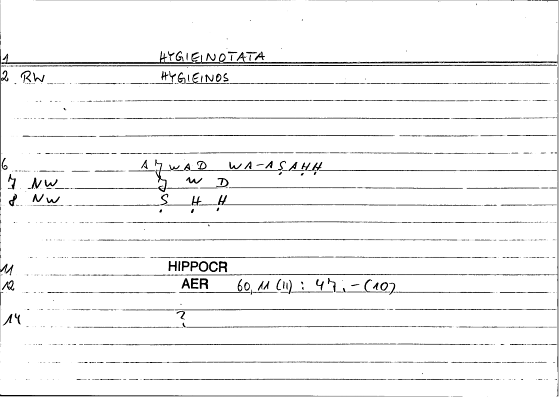 1 HYGIEINOTATA
2 RW HYGIEINOS
6 AJWAD WA-AṢAḤḤ
7 NW J W D
8 NW Ṣ Ḥ Ḥ
11 HIPPOCR
12 AER 60,11 (11) : 47,-(10)
14 ?